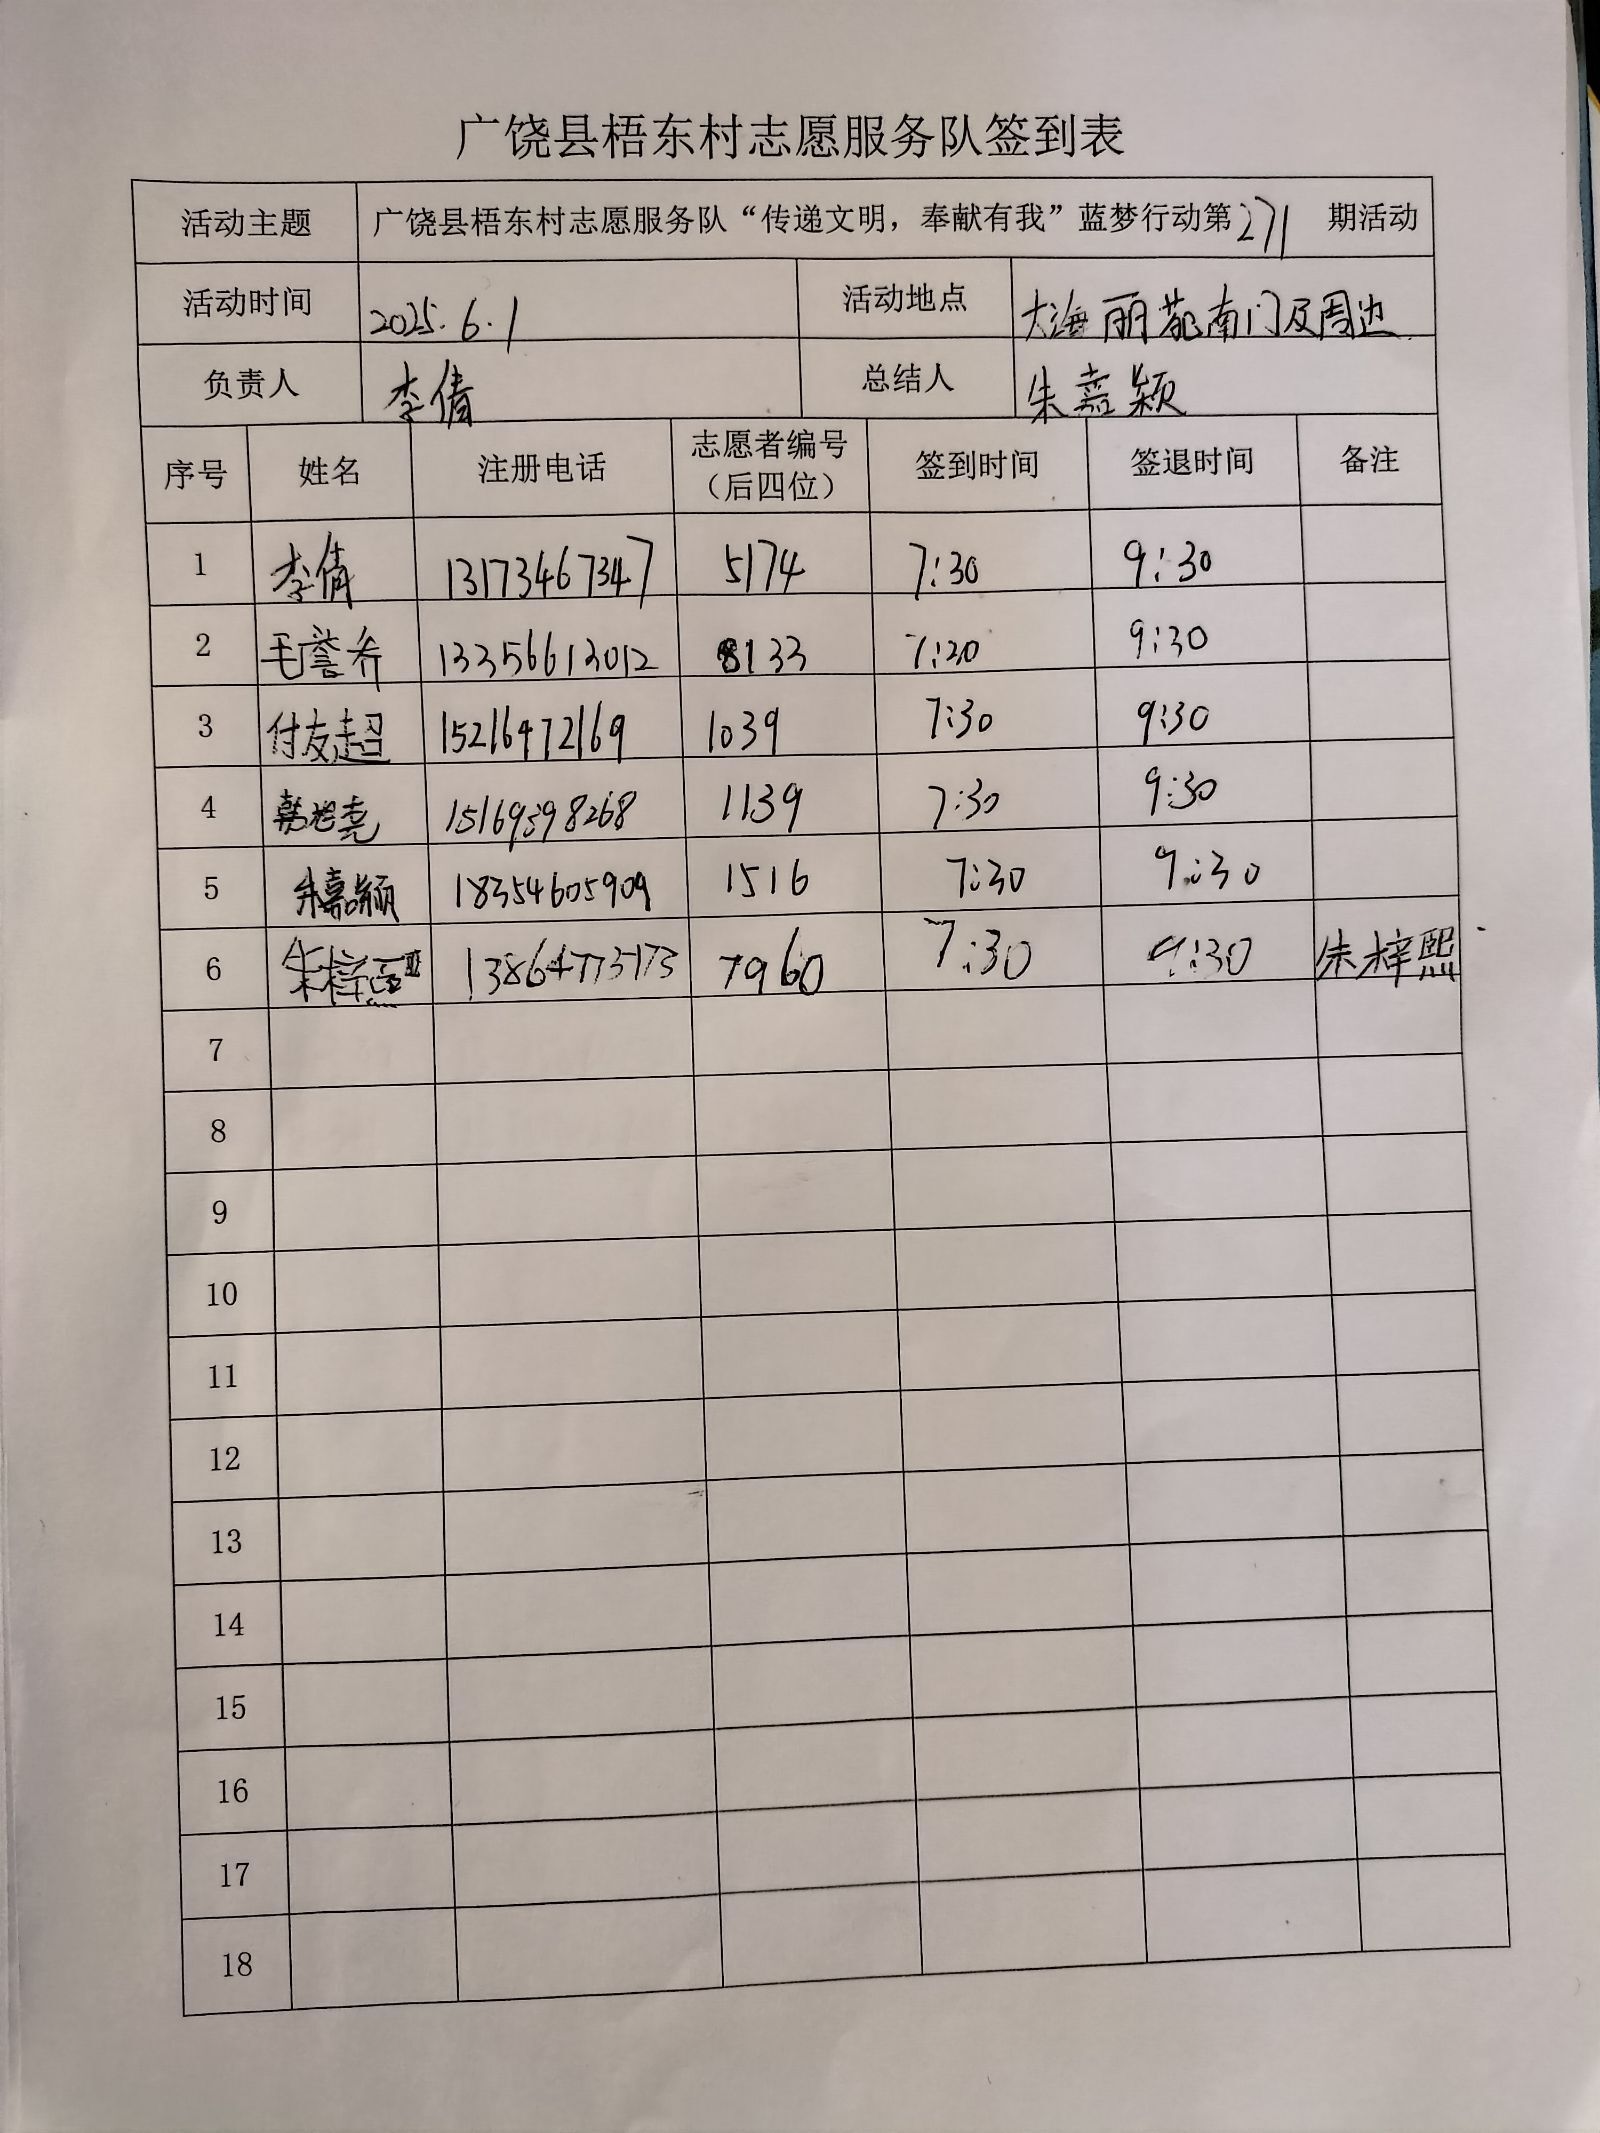 广饶县梧东村志愿服务队签到表
活动主题 广饶县梧东村志愿服务队“传递文明，奉献有我”蓝梦行动第271期活动
活动时间 2025.6.1 活动地点 大海丽苑南门及周边
负责人 李倩 总结人 朱嘉颖
序号 姓名 注册电话 志愿者编号（后四位） 签到时间 签退时间 备注
1 李倩 13173467347 5174 7:30 9:30
2 毛誉乔 13356613012 8133 7:20 9:30
3 付友超 15216472169 1039 7:30 9:30
4 15169598268 1139 7:30 9:30
5 朱嘉颖 18354605909 1516 7:30 9:30
6 朱梓熙 13864773173 7960 7:30 9:30 朱梓熙
7
8
9
10
11
12
13
14
15
16
17
18